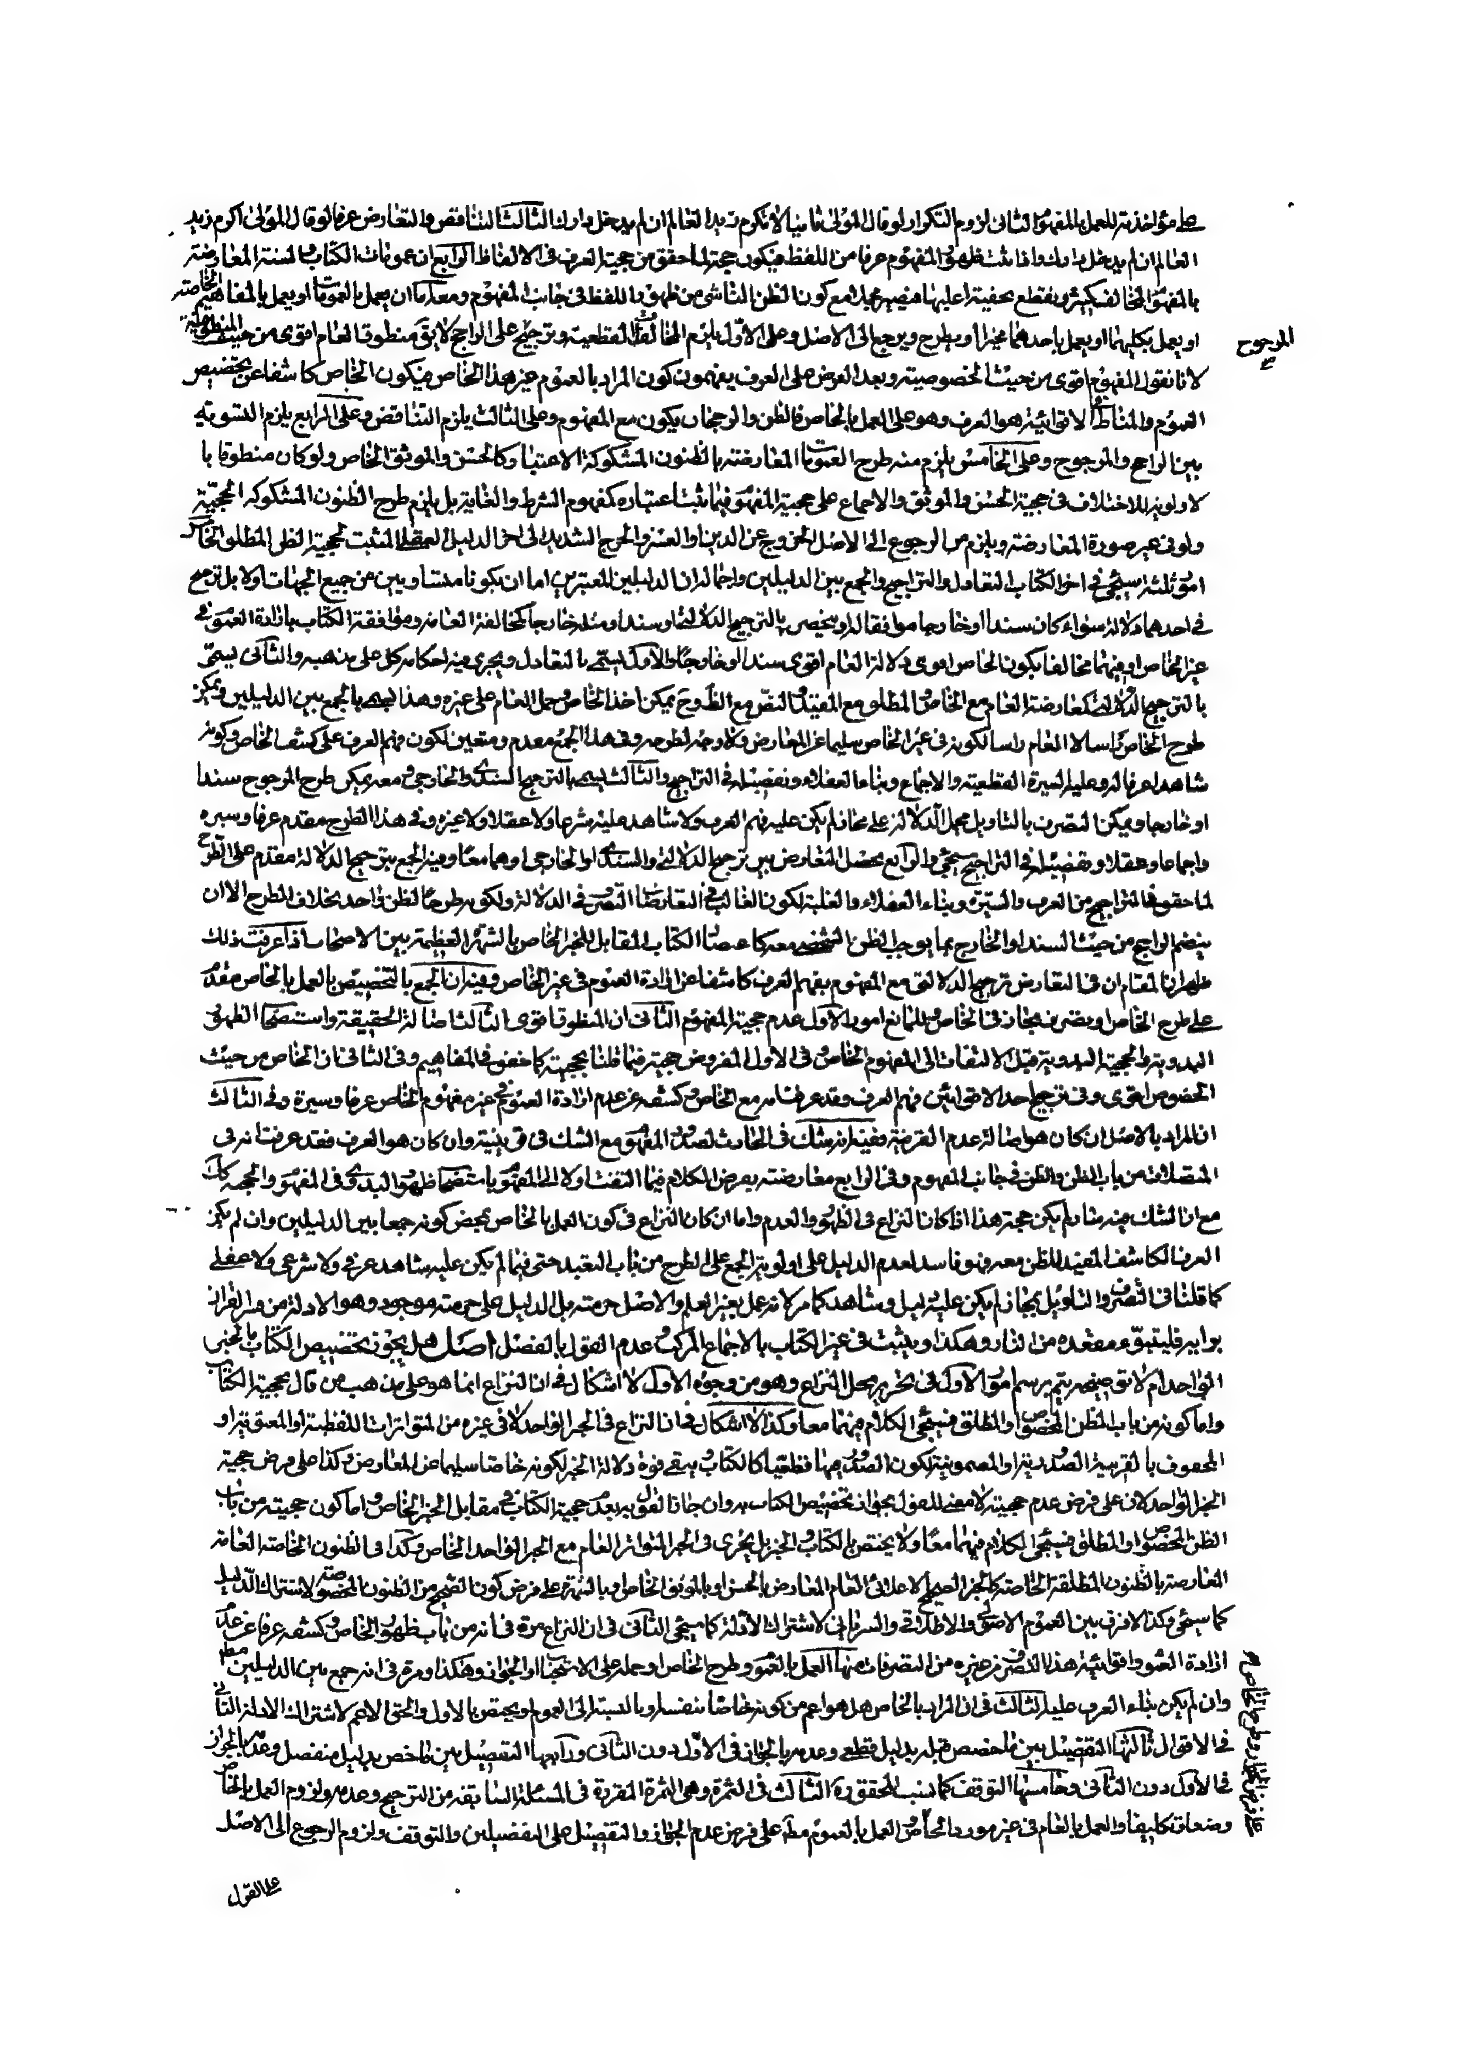 على مؤاخذته للعمل بالمفهوم الثانى لزوم التكرار ولو قال المولى ثانيا لا تكرم زيد العالم ان لم يدخل دارك الثالث التناقض والتعارض عرفا لو قال المولى اكرم زيد
العالم ان لم يدخل دارك واذا ثبت ظهور المفهوم عرفا من اللفظ فيكون حجة لما حقق من حجية العرف فى الالفاظ الرابع ان عمومات الكتاب والسنة المعارضة
بالمفهوم المخالف كثيرة ونقطع بحقية اعليها فيصير مجملا مع كون الظن الناشى من ظهور اللفظ فى جانب المفهوم ومعه اما ان يعمل بالعمومات او يعمل بالمفاهيم الخاصة
او يعمل بكليهما او يعمل باحدهما مخيرا او يطرح ويرجع الى الاصل وعلى الاول يلزم المخالفة القطعية وترجيح على الراجح لا يق منطوق العام اقوى من حيث المنطوقية
المرجوح
لانا نقول المفهوم اقوى من حيث الخصوصية وبعد العرض على العرف يفهمون كون المراد بالعموم غير هذا الخاص فيكون الخاص كاشفا عن تخصيص
العموم والمناط فى الاقوائية هو العرف وهو على العمل بالخاص فالظن والرجحان يكون مع المفهوم وعلى الثالث يلزم التناقض وعلى الرابع يلزم التسوية
بين الراجح والمرجوح وعلى الخامس يلزم منه طرح العمومات المعارضة بالظنون المشكوكة الاعتبار كالحسن والموثق الخاص ولو كان منطوقا با
لاولوية للاختلاف فى حجية الحسن والموثق والاجماع على حجية المفهوم فيما ثبت اعتباره كمفهوم الشرط والغاية بل يلزم طرح الظنون المشكوكة الحجية
ولو فى غير صورة المعارضة ويلزم من الرجوع الى الاصل الخروج عن الدين او العسر والحرج الشديد الى اخر الدليل العقلى المثبت لحجية الظن المطلق الخاص
امور ثلثة سيجئ فى اخر الكتاب التعادل والتراجيح والجمع بين الدليلين واجماله ان الدليلين المعتبرين اما ان يكونا متساويين من جميع الجهات اولا بل ترجيح
فى احدهما دلالة سواء كان سندا او خارجا موافقا له او يختص بالترجيح الدلالتى او سندا ومثله خارجا كمخالفة العامة وموافقة الكتاب بارادة العموم فى
غير الخاص او فيهما مخالفا بكون الخاص اقوى دلالة العام اقوى سندا او خارجا والاول يسمى بالتعادل ويجرى فيه احكامه كل على مذهبه والثانى يسمى
بالترجيح الدلالتى كمعارضة العام مع الخاص والمطلق مع المقيد والنص مع الظاهر ويمكن اخذ الخاص وحمل العام على غيره وهذا يسمى بالجمع بين الدليلين ويمكن
طرح الخاص راسا لا العام راسا لكونه فى غير الخاص سليما عن المعارض ولا وجه لطرحه وفى هذا الجمع مقدم ومتعين لكون فهم العرف على كشف الخاص وكونه
شاهدا عرفا له وعليه السيرة القطعية والاجماع وبناء العقلاء وتفصيله فى التراجيح والثالث يسمى بالترجيح السندى والخارجى ومعه يمكن طرح المرجوح سندا
او خارجا ويمكن التصرف بالتاويل بحمل الدلالة على مجاز لم يكن عليه فهم العرف ولا شاهد عليه شرعا ولا عقلا ولا غيره وفى هذا الطرح مقدم عرفا وسيرة
واجماعا وعقلا وتفصيله فى التراجيح سيجئ والرابع يحصل التعارض بين ترجيح الدلالتى والسندى او الخارجى او هما معا وفيه الجمع بترجيح الدلالة مقدم على الطرح
لما حقق فى التراجيح من العرف والسيرة وبناء العقلاء والغلبة لكون الغالب فى التعارض التصرف فى الدلالة ولكونه طرحا لظن واحد بخلاف الطرح الا ان
ينضم الراجح من حيث السند او الخارج بما يوجب الظن الشخصى معه كاعتضاد الكتاب المقابل للخبر الخاص بالشهرة العظيمة بين الاصحاب اذا عرفت ذلك
ظهر ان المقام ان فى التعارض ترجيح الدلالتى مع المفهوم بفهم العرف كاشفا عن ارادة العموم فى غير الخاص وفيه ان الجمع بالتخصيص بالعمل بالخاص مقدم
على طرح الخاص او بضرب مجاز فى الخاص وللمانع امور الاول عدم حجية المفهوم الثانى ان المنطوق اقوى الثالث اصالة الحقيقة واستصحاب الظهور
البدوية والحجية البدوية قبل الالتفات الى المفهوم الخاص وفى الاول المفروض حجيته فيما قلنا بحجيته كما حقق فى المفاهيم وفى الثانى ان الخاص من حيث
الخصوص اقوى وفى ترجيح احد الاقوائين فهم العرف وقد عرفت انه مع الخاص وكشفه عن عدم ارادة العموم فى غير مفهوم الخاص عرفا وسيرة وفى الثالث
ان المراد بالاصل ان كان هو اصالة عدم القرينة ففيه انه شك فى الحادث لصدور المفهوم مع الشك فى قرينيته وان كان هو العرف فقد عرفت انه فى
المتصلات من باب الظن والظن فى جانب المفهوم وفى الرابع معارضته بعرض الكلام فيما التفت اولا الى المفهوم باستصحاب ظهور البدوى فى المفهوم والحجية كك
مع ان الشك فيه سار لم يكن حجة هذا اذا كان النزاع فى الظهور والعدم واما ان كان النزاع فى كون العمل بالخاص بمحض كونه جمعا بين الدليلين وان لم يكن
العرف الكاشف المفيد للظن معه فهو فاسد لعدم الدليل على اولوية الجمع على الطرح من باب التعبد حتى فيما لم يكن عليه شاهد عرفى ولا شرعى ولا عقلى
كما قلنا فى التصرف والتاويل بمجاز لم يكن عليه دليل وشاهد كما مر لانه عمل بغير العلم والاصل حرمته بل الدليل على حرمته موجود وهو الادلة من فسر القران
برايه فليتبوء مقعده من النار وهكذا ويثبت فى غير الكتاب بالاجماع المركب وعدم القول بالفصل اصل هل يجوز تخصيص الكتاب بالخبر
الواحد ام لا توضيحه يتم برسم امور الاول فى تحرير محل النزاع وهو من وجوه الاول لا اشكال فى ان النزاع انما هو على مذهب من قال بحجية الكتاب
واما كونه من باب الظن المخصوص او المطلق فسيجئ الكلام فيهما معا وكذا لا اشكال فى ان النزاع فى الخبر الواحد لا فى غيره من المتواترات اللفظية او المعنوية او
المحفوف بالقرينة الصدورية او المضمونية لكون الصدور فيها قطعيا كالكتاب ويبقى قوة دلالة الخبر لكونه خاصا سليما عن المعارض وكذا على فرض حجية
الخبر الواحد لان على فرض عدم حجيته لا معنى للقول بجواز تخصيص الكتاب به وان جاز القول به بعدم حجية الكتاب فى مقابل الخبر الخاص واما كون حجيته من باب
الظن المخصوص او المطلق فسيجئ الكلام فيهما معا ولا يختص بالكتاب والخبر بل يجرى فى الخبر المتواتر العام مع الخبر الواحد الخاص وكذا فى الظنون الخاصة العامة
المعارضة بالظنون المطلقة الخاصة كالخبر الصحيح الاعلائى العام المعارض بالحسن او بالموثق الخاص او بالشهرة على فرض كون الصحيح من الظنون المخصوصة لاشتراك الدليل
كما سيجئ وكذا لا فرق بين العموم الاصولى والاطلاقى والسريانى لاشتراك الادلة كما سيجئ الثانى فى ان النزاع مرة فى انه من باب ظهور الخاص وكشفه عرفا عن عدم
ارادة العموم واقوائية هذا التصرف من غيره من التصرفات منها العمل بالعموم وطرح الخاص او حمله على الاستحباب او الجواز وهكذا ومرة فى انه جمع بين الدليلين مط
وان لم يكن بناء العرف عليه الثالث فى ان المراد بالخاص هل هو اعم من كونه خاصا بنفسه او بالنسبة الى العموم او يختص بالاول والحق الاعم لاشتراك الادلة الثانى
فى الاقوال ثالثها التفصيل بين ما خصص قبله بدليل قطعى وعدمه بالجواز فى الاول دون الثانى ورابعها التفصيل بين ما خص بدليل منفصل وعدمه بالجواز
فى الاول دون الثانى وخامسها التوقف كما نسب للمحقق ره الثالث فى الثمرة وهى الثمرة المقررة فى المسئلة السابقة من الترجيح وعدمه ولزوم العمل بالخاص
وضعا وتكليفا والعمل بالعام فى غير مورد الخاص والعمل بالعموم مط على فرض عدم الجواز والتفصيل على التفصيلين والتوقف ولزوم الرجوع الى الاصل
على القول